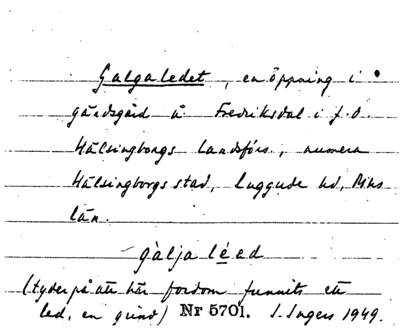 Galgaledet, en öppning i
gärdsgård å Fredriksdal i f.d.
Hälsingborgs landsförs., numera
Hälsingborgs stad, Luggude hd, Mhs
län.
gàlja léed
(tyder på att här fordom funnits ett
led, en grind) Nr 5701. I. Ingers 1949.